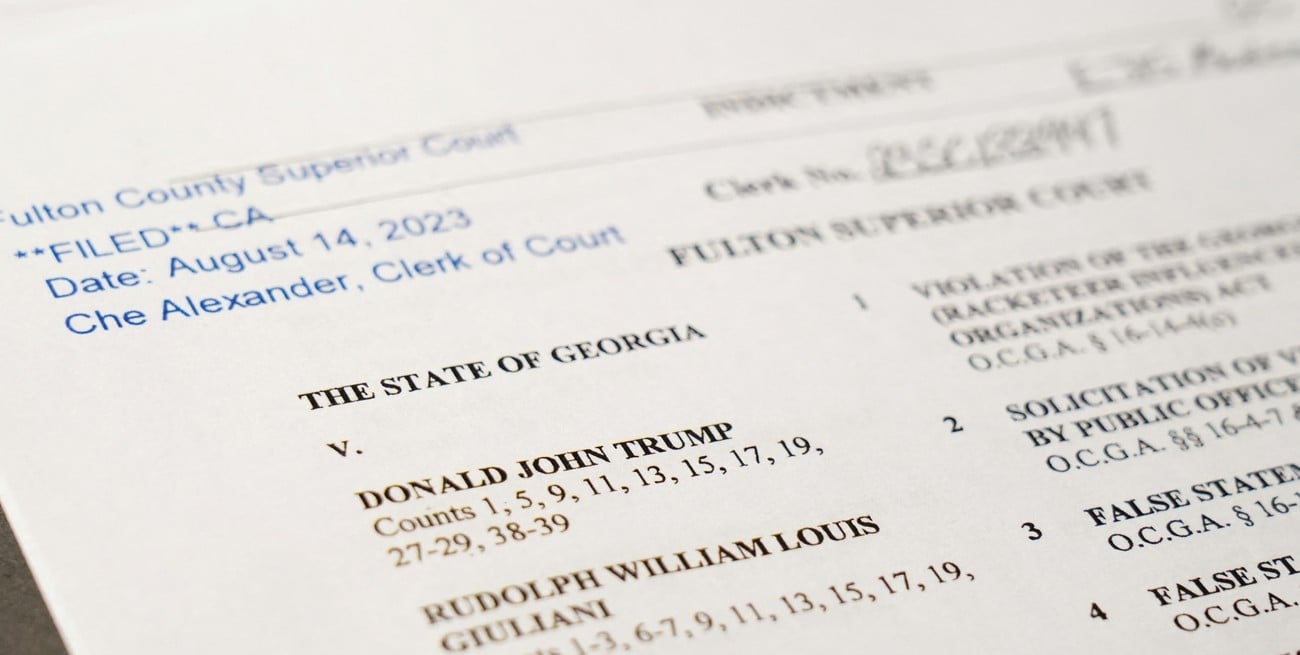 Fulton County Superior Court
**FILED** CA
Date: August 14, 2023
Che Alexander, Clerk of Court
INDICTMENT
Clerk No.
FULTON SUPERIOR COURT
THE STATE OF GEORGIA
v.
DONALD JOHN TRUMP
Counts 1, 5, 9, 11, 13, 15, 17, 19,
27-29, 38-39
RUDOLPH WILLIAM LOUIS
GIULIANI
1-3, 6-7, 9, 11, 13, 15, 17, 19,
1 VIOLATION OF THE
(RACKETEER
ORGANIZATIONS) ACT
O.C.G.A. § 16-14-4(c)
2 SOLICITATION OF
BY PUBLIC
O.C.G.A. §§ 16-4-7 &
3 FALSE
O.C.G.A. § 16-
4 FALSE
O.C.G.A.